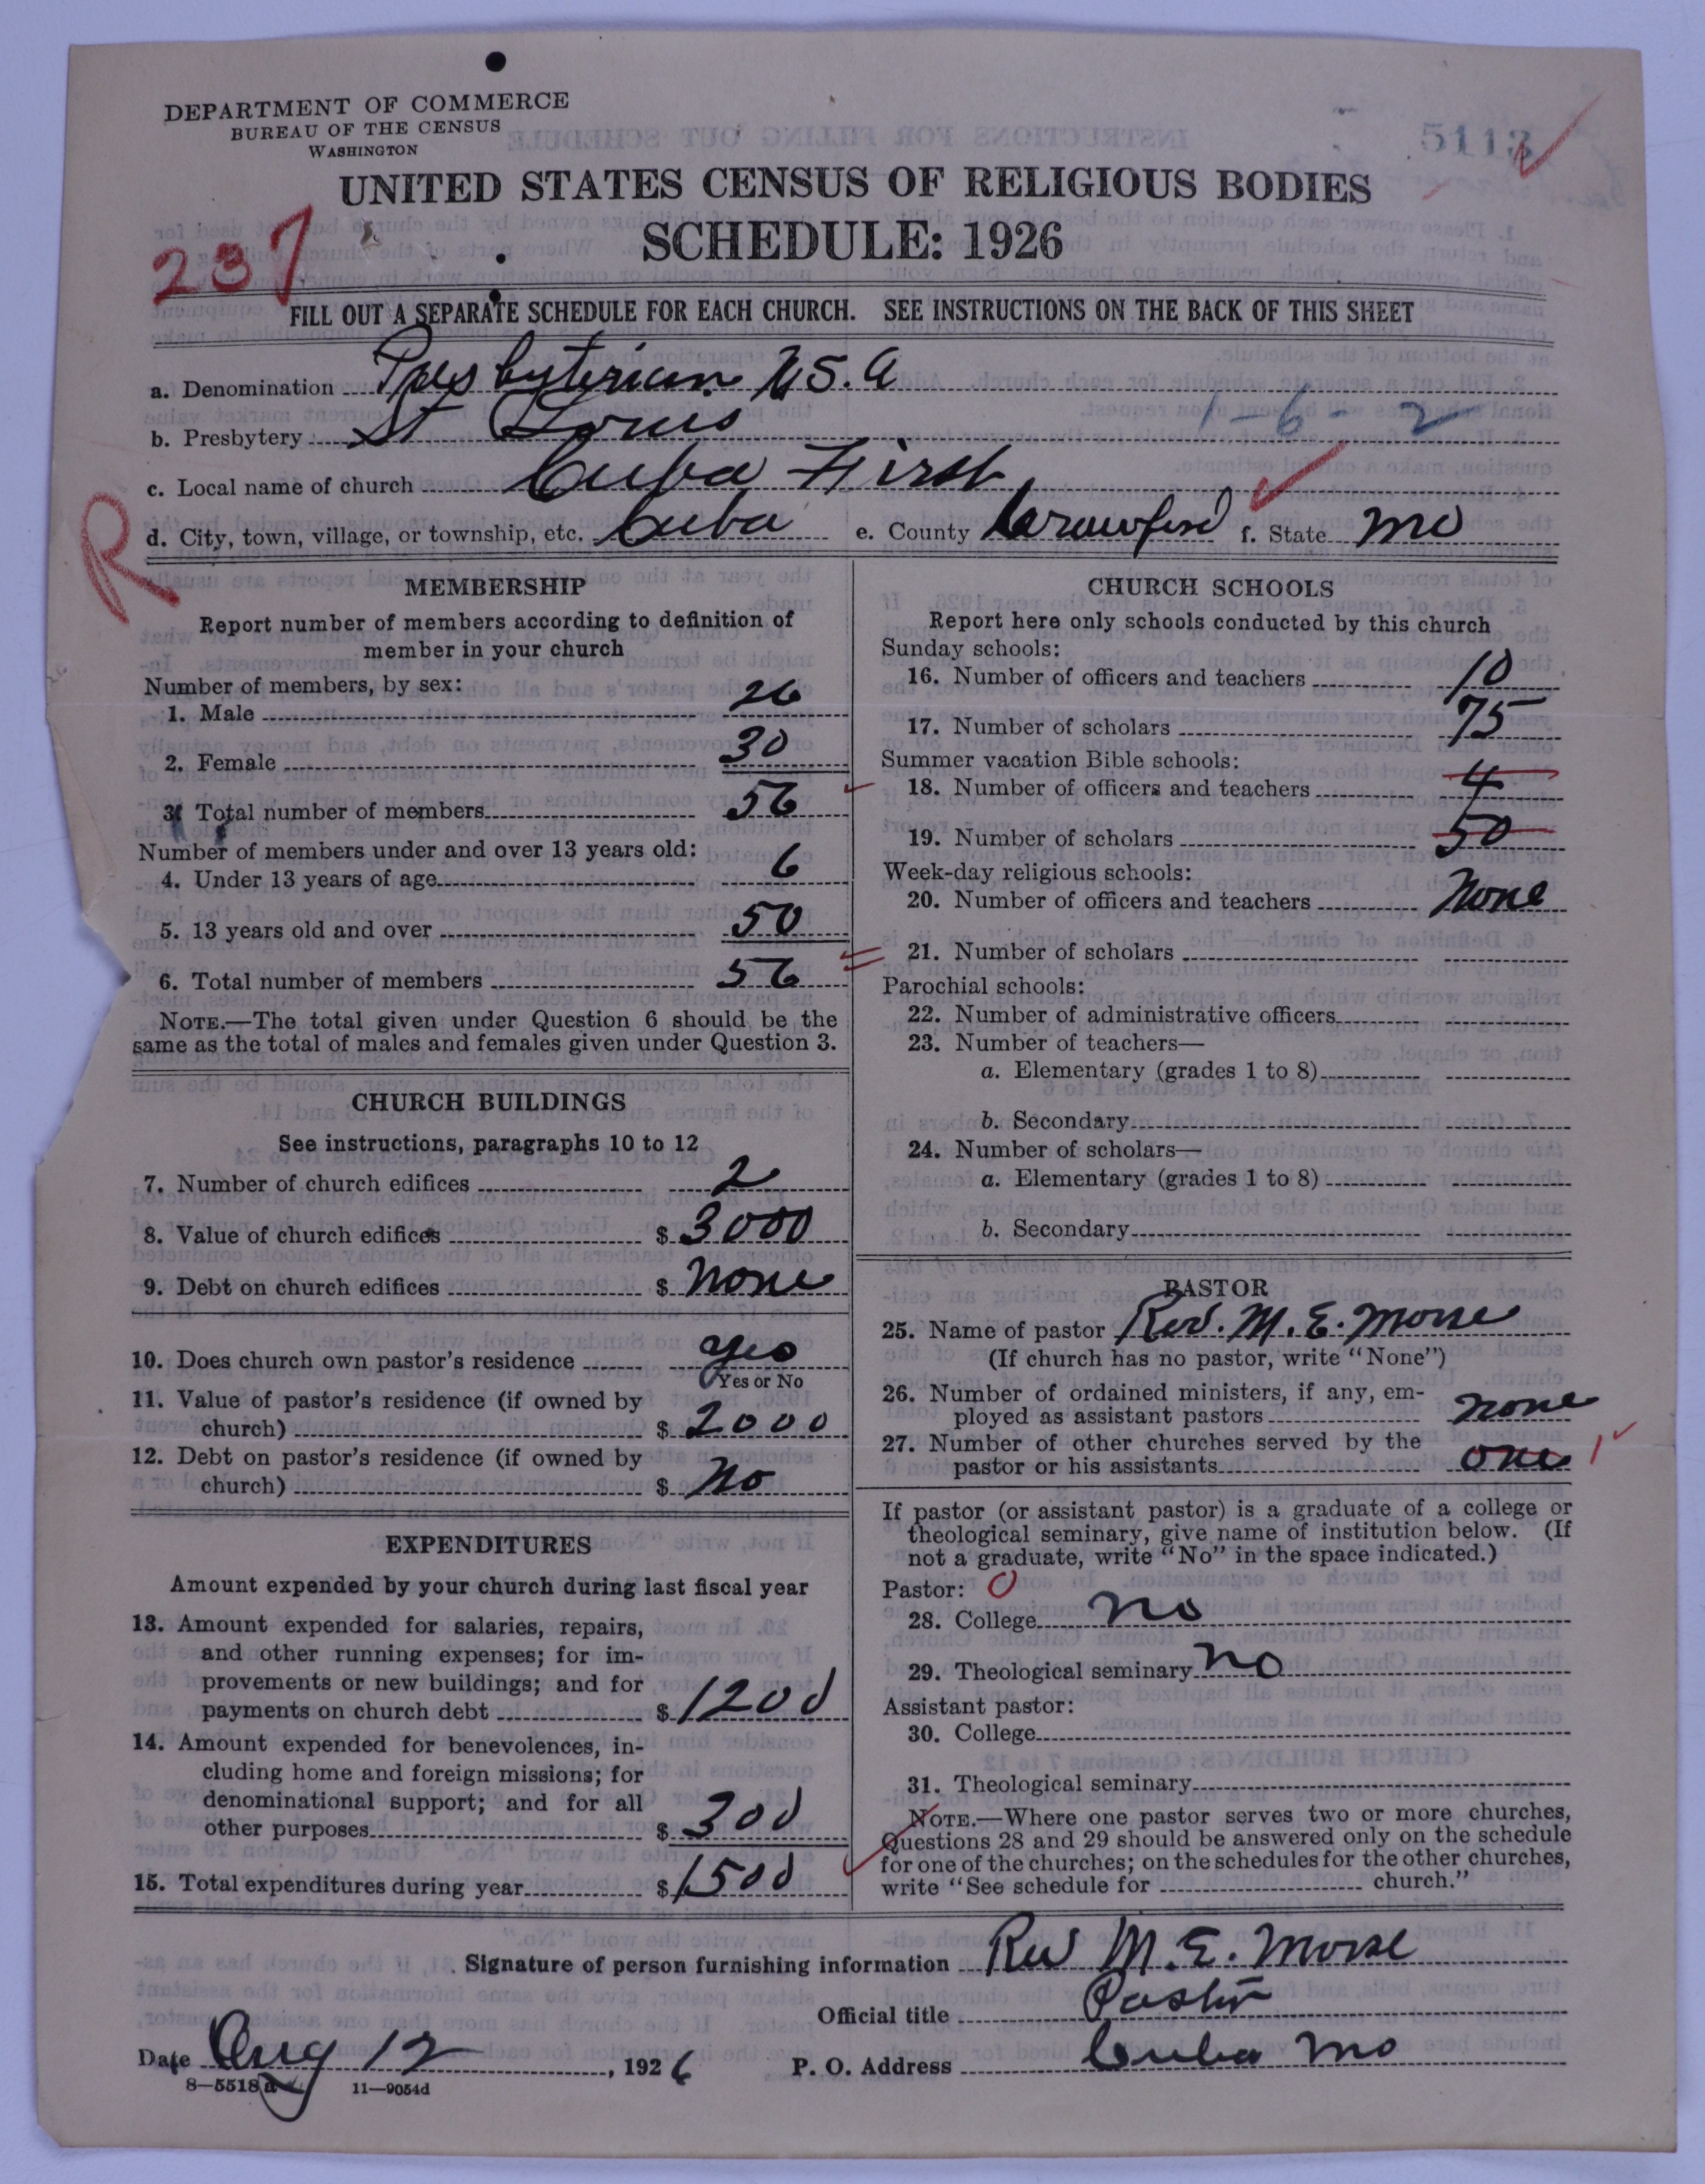 DEPARTMENT OF COMMERCE
BUREAU OF THE CENSUS
WASHINGTON
5113
UNITED STATES CENSUS OF RELIGIOUS BODIES
SCHEDULE: 1926
237
FILL OUT A SEPARATE SCHEDULE FOR EACH CHURCH. SEE INSTRUCTIONS ON THE BACK OF THIS SHEET
a. Denomination Presbyterian U.S.A
b. Presbytery St Louis 1-6-2
c. Local name of church Cuba First
R
d. City, town, village, or township, etc. Cuba e. County Crawford f. State Mo
MEMBERSHIP
Report number of members according to definition of
member in your church
Number of members, by sex:
1. Male 26
2. Female 30
3. Total number of members 56
Number of members under and over 13 years old:
4. Under 13 years of age 6
5. 13 years old and over 50
6. Total number of members 56
NOTE.—The total given under Question 6 should be the
same as the total of males and females given under Question 3.
CHURCH BUILDINGS
See instructions, paragraphs 10 to 12
7. Number of church edifices 2
8. Value of church edifices $ 3000
9. Debt on church edifices $ None
10. Does church own pastor's residence yes
Yes or No
11. Value of pastor's residence (if owned by
church) $ 2000
12. Debt on pastor's residence (if owned by
church) $ No
EXPENDITURES
Amount expended by your church during last fiscal year
13. Amount expended for salaries, repairs,
and other running expenses; for im-
provements or new buildings; and for
payments on church debt $ 1200
14. Amount expended for benevolences, in-
cluding home and foreign missions; for
denominational support; and for all
other purposes $ 300
15. Total expenditures during year $ 1500
CHURCH SCHOOLS
Report here only schools conducted by this church
Sunday schools:
16. Number of officers and teachers 10
17. Number of scholars 75
Summer vacation Bible schools:
18. Number of officers and teachers 4
19. Number of scholars 50
Week-day religious schools:
20. Number of officers and teachers None
21. Number of scholars
Parochial schools:
22. Number of administrative officers
23. Number of teachers—
a. Elementary (grades 1 to 8)
b. Secondary
24. Number of scholars—
a. Elementary (grades 1 to 8)
b. Secondary
PASTOR
25. Name of pastor Rev. M. E. Morse
(If church has no pastor, write "None")
26. Number of ordained ministers, if any, em-
ployed as assistant pastors none
27. Number of other churches served by the
pastor or his assistants one 1
If pastor (or assistant pastor) is a graduate of a college or
theological seminary, give name of institution below. (If
not a graduate, write "No" in the space indicated.)
Pastor: 0
28. College no
29. Theological seminary no
Assistant pastor:
30. College
31. Theological seminary
NOTE.—Where one pastor serves two or more churches,
Questions 28 and 29 should be answered only on the schedule
for one of the churches; on the schedules for the other churches,
write "See schedule for church."
Signature of person furnishing information Rev M. E. Morse
Official title Pastor
Date Aug 12, 1926 P. O. Address Cuba Mo
8—5518a 11—9054d